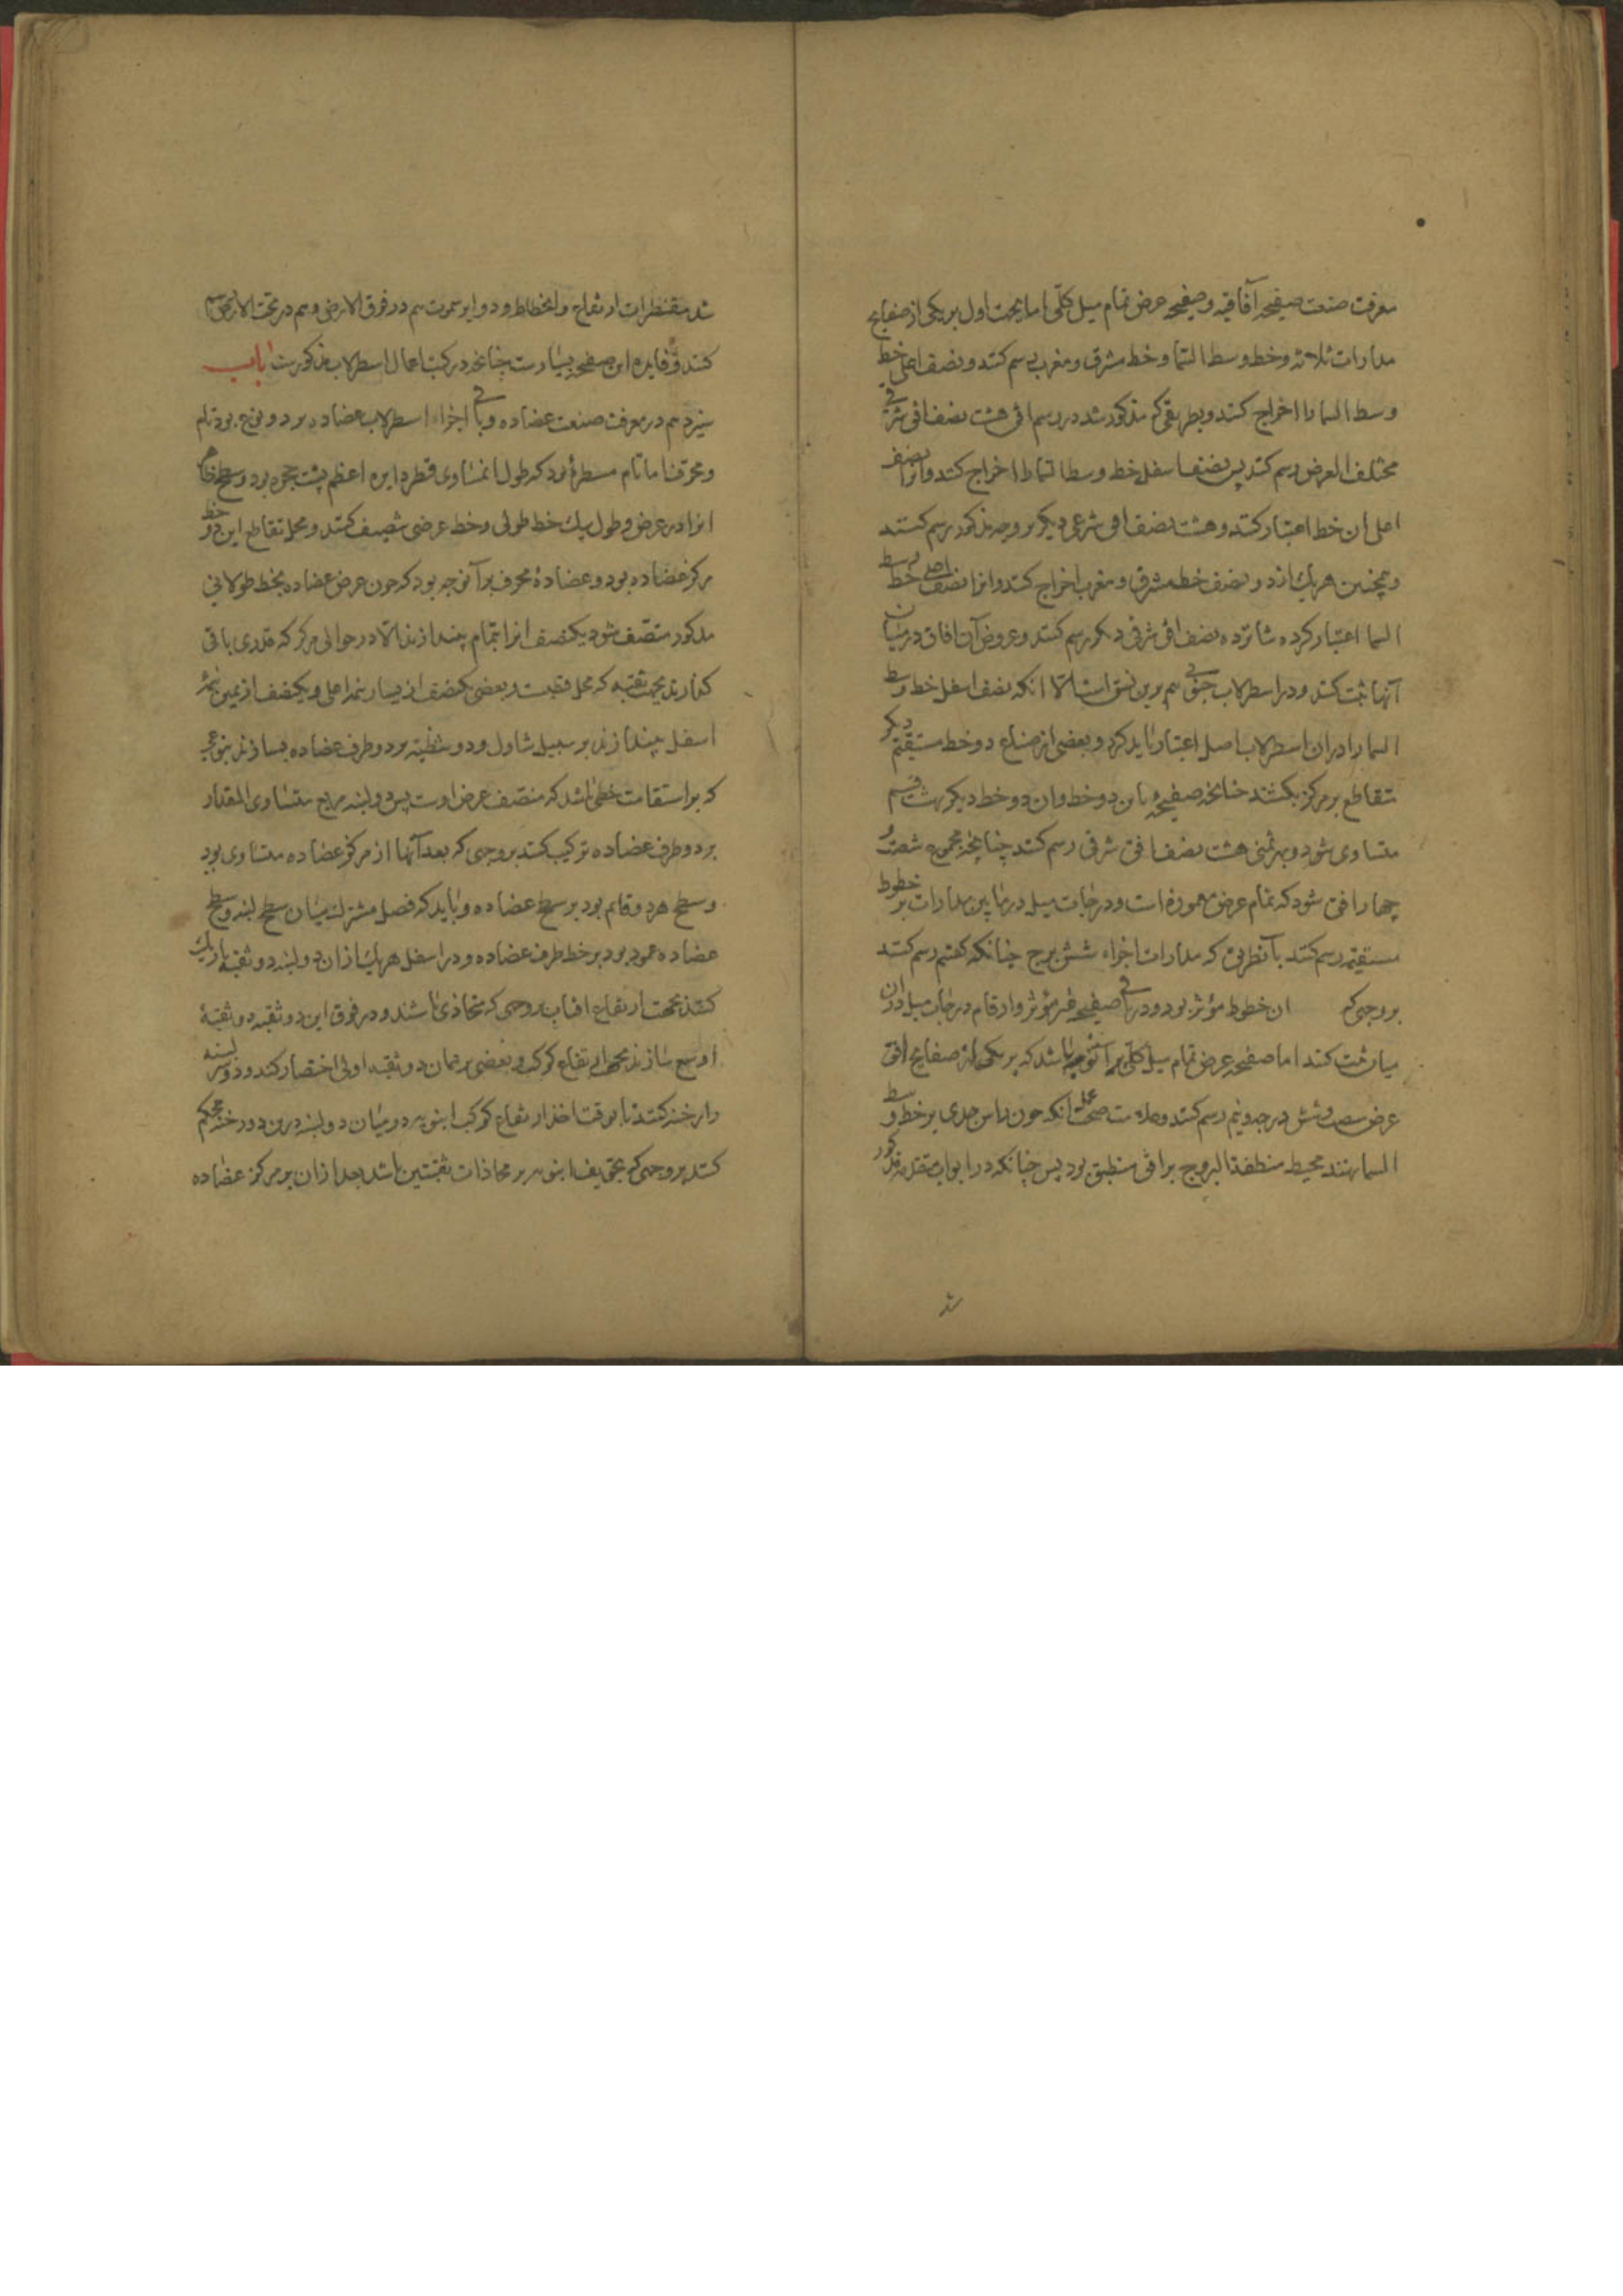 معرفت صنعت صفیحه آفاقیه و صفیحه عرض تمام میل کلی اما بجهت اول بر یکی از صفایح
مدارات ثلاثه و خط وسط السما و خط مشرق و مغرب رسم کنند و نصف اعلی خط
وسط السما را اخراج کنند و بطریقی که مذکور شد در رسم افق هشت نصف افق شرقی
مختلف العرض رسم کنند پس نصف اسفل خط وسط السما را اخراج کنند و آنرا نصف
اعلی ان خط اعتبار کنند و هشت نصف افق شرقی دیگر بر وجه مذکور رسم کنند
و همچنین هر یک از دو نصف خط مشرق و مغرب اخراج کنند و انرا نصف اعلی خط وسط
السما اعتبار کرده شانزده نصف افق شرقی دیگر رسم کنند و عروض آن افاق در میان
آنها ثبت کنند و در اسطرلاب جنوبی هم برین نسق است الا انکه نصف اسفل خط وسط
السما را در ان اسطرلاب اصل اعتبار باید کرد و بعضی از صناع دو خط مستقیم دیکر
متقاطع بر مرکز بکشند چنانچه صفیحه باین دو خط و ان دو خط دیکر بهشت قسم
متساوی شود و بر ثمنی هشت نصف افق شرقی رسم کنند چنانچه مجموع شصت و
چهار افق شود که تمام عرض معموره است و درجات میل در مابین مدارات بر خطوط
مستقیمه رسم کنند بآنطریق که مدارات اجزاء شش برج چنانکه کفتیم رسم کنند
بروجی که ان خطوط مؤثر بود و در باقی صفیحه غیر مؤثر و ارقام درجات میل در ان
میان ثبت کنند اما صفیحه عرض تمام میل کلی بر آنوجه باشد که بر یکی از صفایح افق
عرض شصت و شش درجه و نیم رسم کنند و علامت صحت عمل انکه چون راس جدی بر خط وسط
السما نهند محیط منطقة البروج بر افق منطبق بود پس چنانکه در ابواب متقدمه مذکور
شد
شد مقنطرات ارتفاع و انحطاط و دوایر سموت هم در فوق الارض و هم در تحت الارض رسم
کنند و فایده این صفیحه بسیارست چنانچه در کتب اعمال اسطرلاب مذکورست باب
سیزدهم در معرفت صنعت عضاده و باقی اجزاء اسطرلاب عضاده بر دو نوع بود تام
و محرف اما تام مسطرۀ بود که طول ان مساوی قطر دایره اعظم پشت حجره بود و سطح ظاهر
انرا در عرض و طول بیک خط طولی و خط عرضی تنصیف کنند و محل تقاطع این دو خط
مرکز عضاده بود و عضادۀ محرف بر آنوجه بود که چون عرض عضاده بخط طولانی
مذکور منتصف شود یک نصف انرا بتمام بیندازند الا در حوالی مرکز که قدری باقی
گذارند بجهت ثقبه که محل قطبست و بعضی یک نصف از یسار نیمۀ اعلی و یک نصف از یمین نیمۀ
اسفل بیندازند بر سبیل تناول و دو شظیه بر دو طرف عضاده بسازند بنوعی
که بر استقامت خطی باشد که منصف عرض اوست پس دو لبنه مربع متساوی المقدار
بر دو طرف عضاده ترکیب کنند بروجهی که بعد آنها از مرکز عضاده متساوی بود
و سطح هر دو قایم بود بر سطح عضاده و باید که فصل مشترک میان سطح لبنه و سطح
عضاده عمود بود بر خط طرف عضاده و در اسفل هر یک از ان دو لبنه دو ثقبه باریک
کنند بجهت ارتفاع افتاب بروجهی که متحاذی باشند و در فوق این دو ثقبه دو ثقبۀ
اوسع سازند بجهة ارتفاع کوکب و بعضی بر همان دو ثقبه اولی اختصار کنند و دو سر لبنه
را رخنه کنند تا بوقت اخذ ارتفاع کوکب انبوبه در میان دو لبنه درین دو رخنه محکم
کنند بروجهی که تجویف انبوبه بر محاذات ثقبتین باشد بعد از ان بر مرکز عضاده